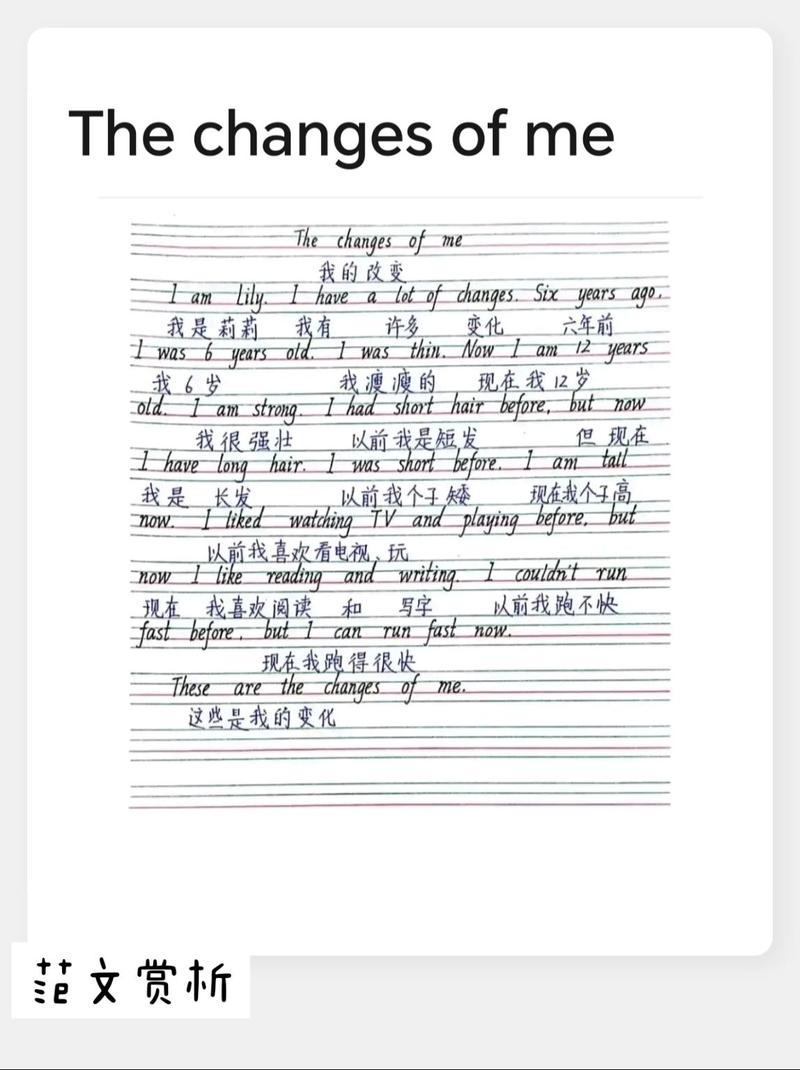 The changes of me
The changes of me
我的改变
I am Lily. I have a lot of changes. Six years ago,
我是莉莉 我有 许多 变化 六年前
I was 6 years old. I was thin. Now I am 12 years
我 6 岁 我瘦瘦的 现在我 12 岁
old. I am strong. I had short hair before, but now
我很强壮 以前我是短发 但 现在
I have long hair. I was short before. I am tall
我是 长发 以前我个子矮 现在我个子高
now. I liked watching TV and playing before, but
以前我喜欢看电视、玩
now I like reading and writing. I couldn't run
现在 我喜欢阅读 和 写字 以前我跑不快
fast before, but I can run fast now.
现在我跑得很快
These are the changes of me.
这些是我的变化
范文赏析